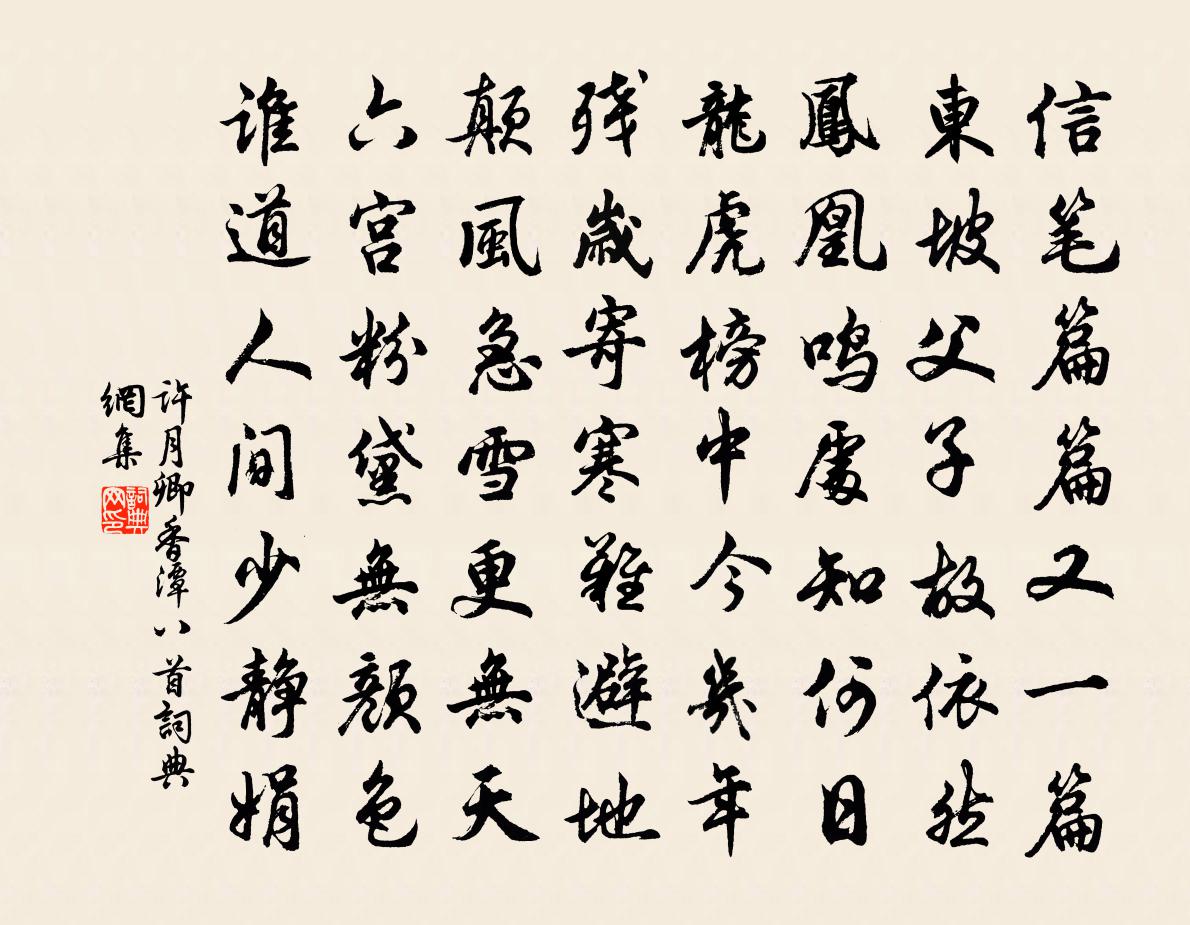 信笔篇篇又一篇
東坡父子故依然
鳳凰鸣處知何日
龍虎榜中今幾年
残歲寄寒難避地
颠風急雪更無天
六宫粉黛無颜色
谁道人间少静娟
许月卿香潭八首詞典
網集
詞典网印